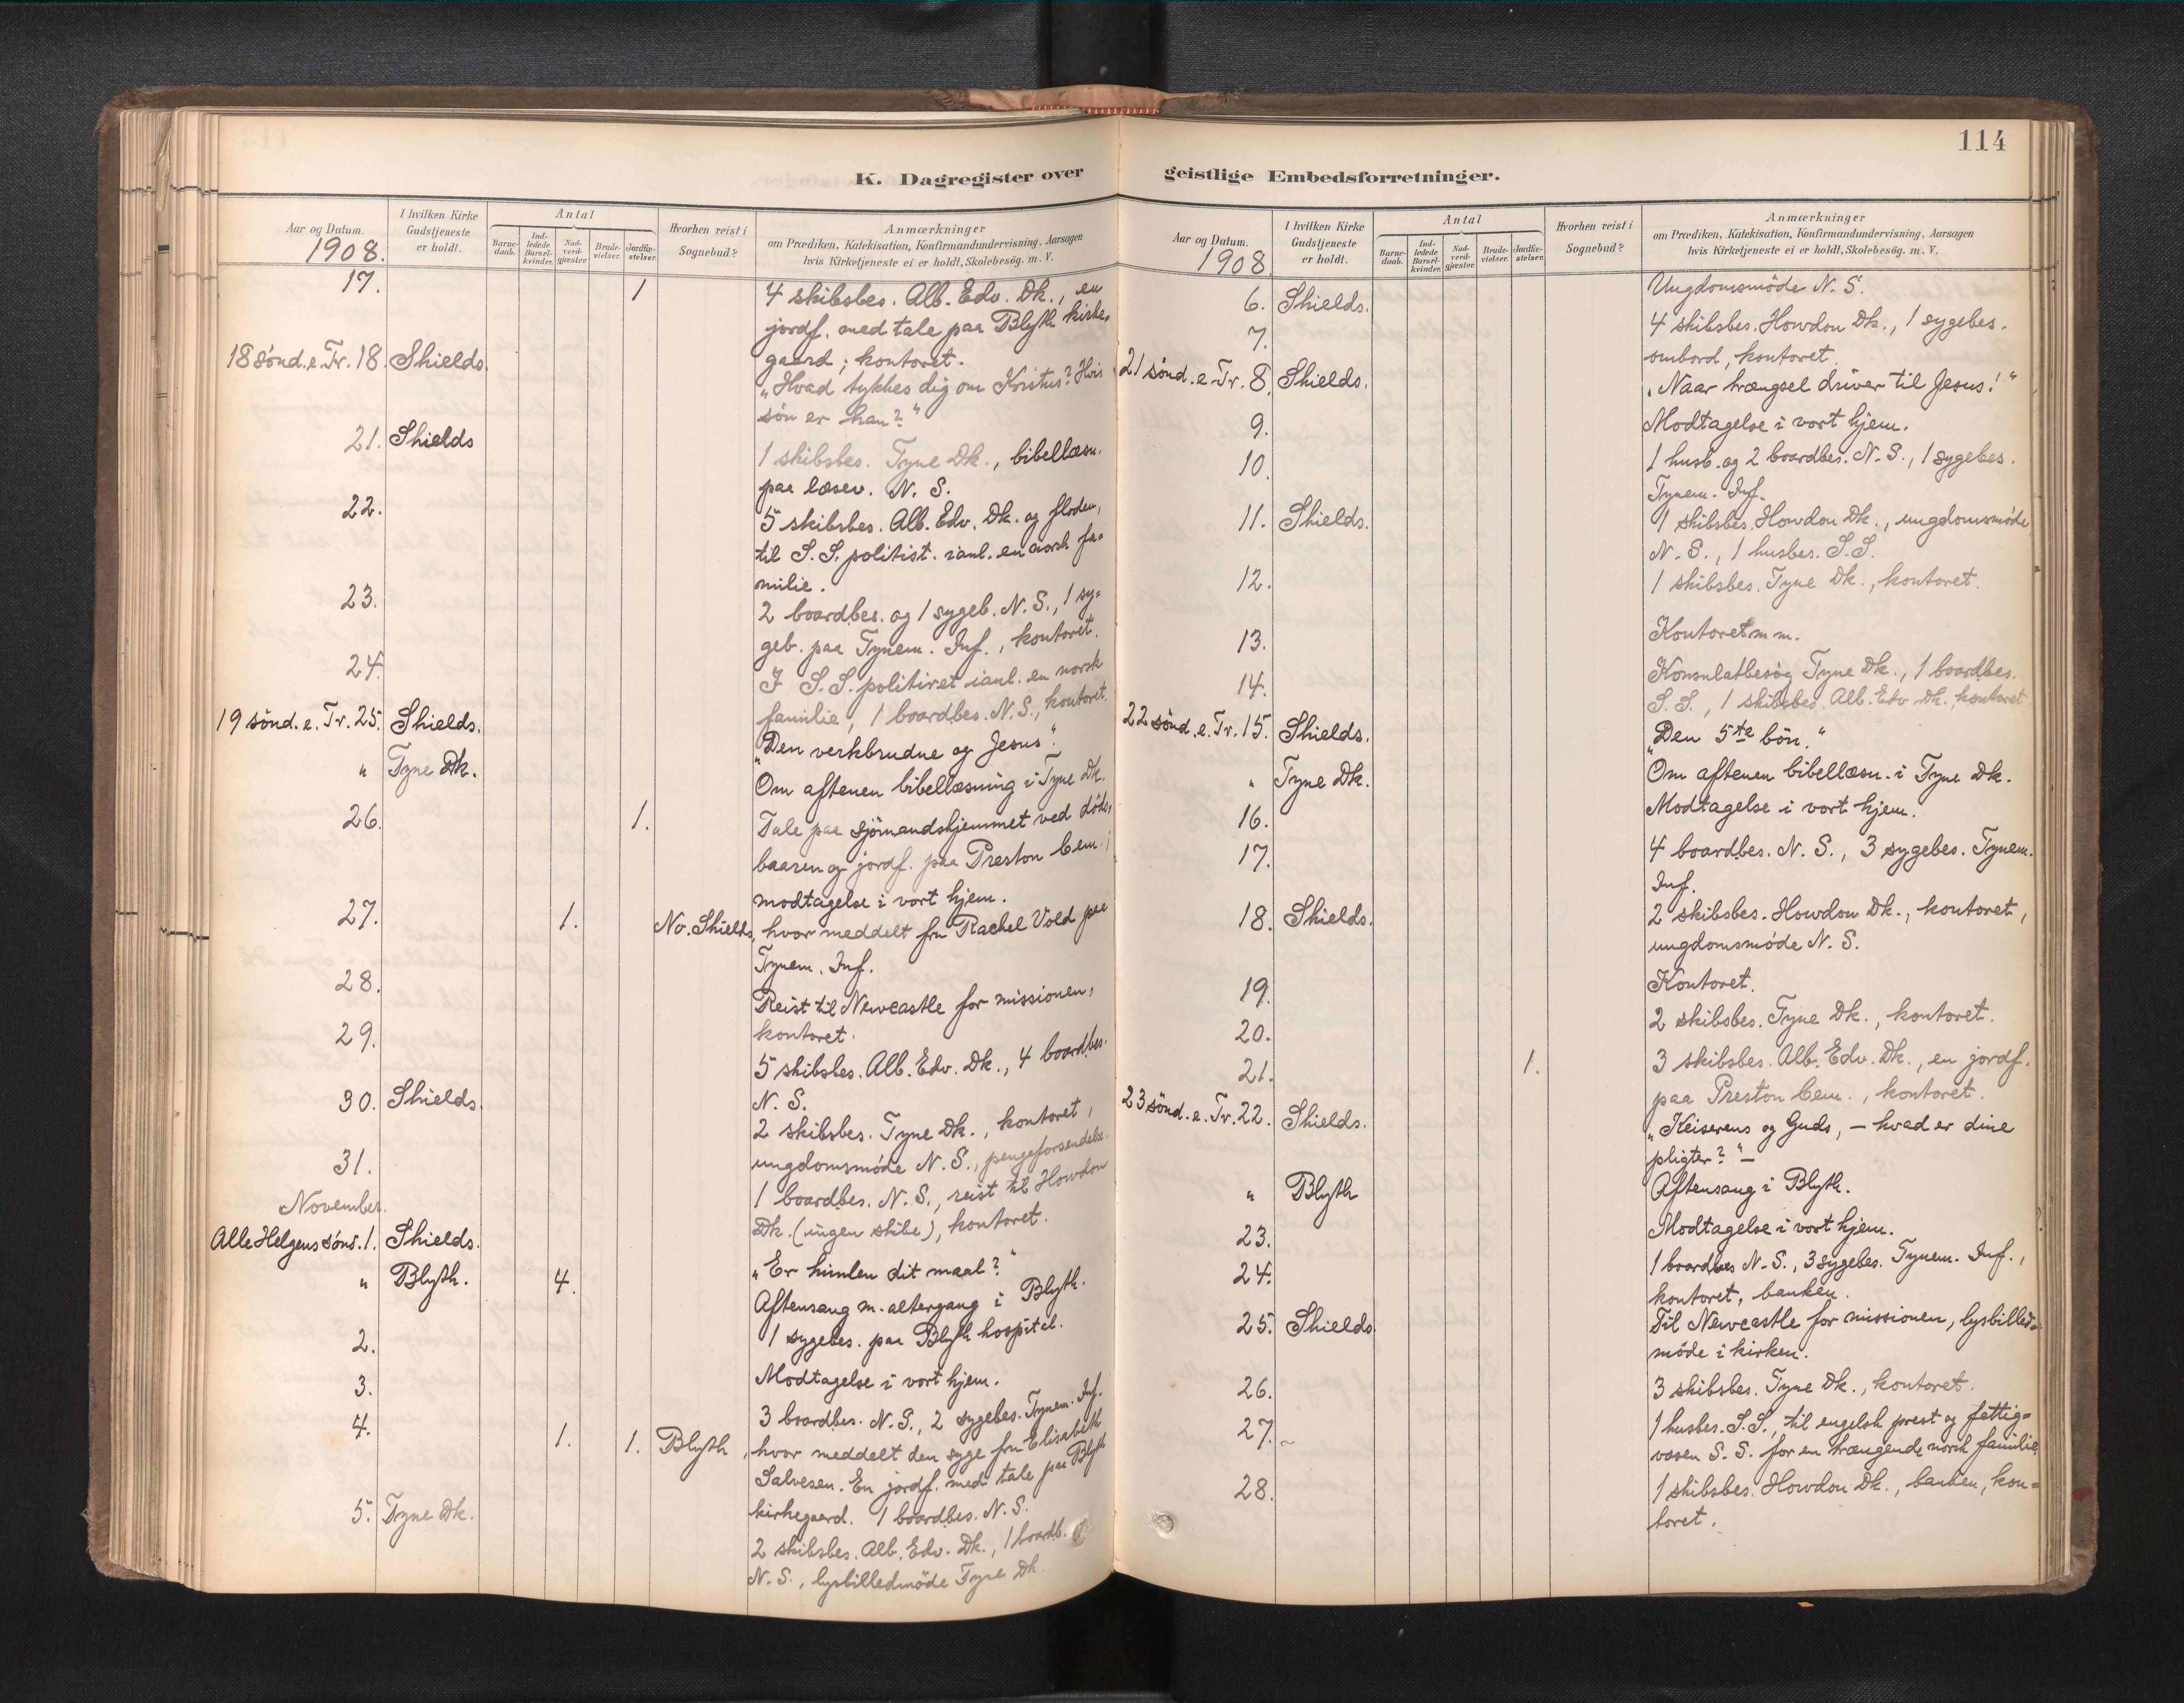 114
K. Dagregister over
Aar og Datum.
1908.
I hvilken Kirke
Gudstjeneste
er holdt.
Antal
Barne-
daab.
Ind-
ledede
Barsel-
kvinder.
Nad-
verd-
gjæster.
Brude-
vielser.
Jordfæ-
stelser.
Hvorhen reist i
Sognebud?
Anmærkninger
om Prædiken, Katekisation, Konfirmandundervisning, Aarsagen
hvis Kirketjeneste ei er holdt, Skolebesög. m. V.
17. 1 4 skibsbes. Alb. Edv. Dk., en
jordf. med tale paa Blyth kirke-
gaard; kontoret.
18 sönd. e. Tr. 18. Shields. „Hvad tykkes dig om Kristus? Hvis
sön er han?“
21. Shields 1 skibsbes. Tyne Dk., bibellæsn.
paa læsev. N. S.
22. 5 skibsbes. Alb. Edv. Dk. og floden,
til S. S. politist. ianl. en norsk fa-
milie.
23. 2 boardbes. og 1 sygeb. N. S., 1 sy-
geb. paa Tynem. Inf., kontoret.
24. I S. S. politiret ianl. en norsk
familie, 1 boardbes. N. S., kontoret.
19 sönd. e. Tr. 25. Shields. „Den verkbrudne og Jesus“.
" Tyne Dk. Om aftenen bibellæsning i Tyne Dk.
26. 1. Tale paa sjömandshjemmet ved döds-
baaren og jordf. paa Preston Cem.;
modtagelse i vort hjem.
27. 1. No. Shields, hvor meddelt fru Rachel Vold paa
Tynem. Inf.
28. Reist til Newcastle for missionen,
kontoret.
29. 5 skibsbes. Alb. Edv. Dk., 4 boardbes.
N. S.
30. Shields. 2 skibsbes. Tyne Dk., kontoret,
ungdomsmöde N. S., pengeforsendelse.
31. 1 boardbes. N. S., reist til Howdon
Dk. (ingen skibe), kontoret.
November.
Alle Helgens sönd. 1. Shields. „Er himlen dit maal?“
" Blyth. 4. Aftensang m. altergang i Blyth.
1 sygebes. paa Blyth hospital.
2. Modtagelse i vort hjem.
3. 3 boardbes. N. S., 2 sygebes. Tynem. Inf.
4. 1. 1. Blyth, hvor meddelt den syge fru Elisabeth
Salvesen. En jordf. med tale paa Blyth
kirkegaard. 1 boardbes. N. S.
5. Tyne Dk. 2 skibsbes. Alb. Edv. Dk., 1 boardb.
N. S., lysbilledmöde Tyne Dk.
geistlige Embedsforretninger.
Aar og Datum.
1908.
I hvilken Kirke
Gudstjeneste
er holdt.
Antal
Barne-
daab.
Ind-
ledede
Barsel-
kvinder.
Nad-
verd-
gjæster.
Brude-
vielser.
Jordfæ-
stelser.
Hvorhen reist i
Sognebud?
Anmærkninger
om Prædiken, Katekisation, Konfirmandundervisning, Aarsagen
hvis Kirketjeneste ei er holdt, Skolebesög. m. V.
6. Shields. Ungdomsmöde N. S.
7. 4 skibsbes. Howdon Dk., 1 sygebes.
ombord, kontoret.
21 sönd. e. Tr. 8. Shields. „Naar trængsel driver til Jesus!“
9. Modtagelse i vort hjem.
10. 1 husb. og 2 boardbes. N. S., 1 sygebes.
Tynem. Inf.
11. Shields. 1 skibsbes. Howdon Dk., ungdomsmöde
N. S., 1 husbes. S. S.
12. 1 skibsbes. Tyne Dk., kontoret.
13. Kontoret m m.
14. Konsulatbesög Tyne Dk., 1 boardbes.
S. S., 1 skibsbes. Alb. Edv. Dk., kontoret
22 sönd. e. Tr. 15. Shields. „Den 5te bön.“
" Tyne Dk. Om aftenen bibellæsn. i Tyne Dk.
16. Modtagelse i vort hjem.
17. 4 boardbes. N. S., 3 sygebes. Tynem.
Inf.
18. Shields. 2 skibsbes. Howdon Dk., kontoret,
ungdomsmöde N. S.
19. Kontoret.
20. 2 skibsbes. Tyne Dk., kontoret.
21. 1. 3 skibsbes. Alb. Edv. Dk., en jordf.
paa Preston Cem., kontoret.
23 sönd. e. Tr. 22. Shields. „Keiserens og Guds, — hvad er dine
pligter?“ —
" Blyth Aftensang i Blyth.
23. Modtagelse i vort hjem.
24. 1 boardbes N. S., 3 sygebes. Tynem. Inf.,
kontoret, banken.
25. Shields Til Newcastle for missionen, lysbilled-
möde i kirken.
26. 3 skibsbes. Tyne Dk., kontoret.
27. ~ 1 husbes. S. S., til engelsk prest og fattig-
væsen S. S. for en trængende norsk familie.
28. 1 skibsbes. Howdon Dk., banken, kon-
toret.